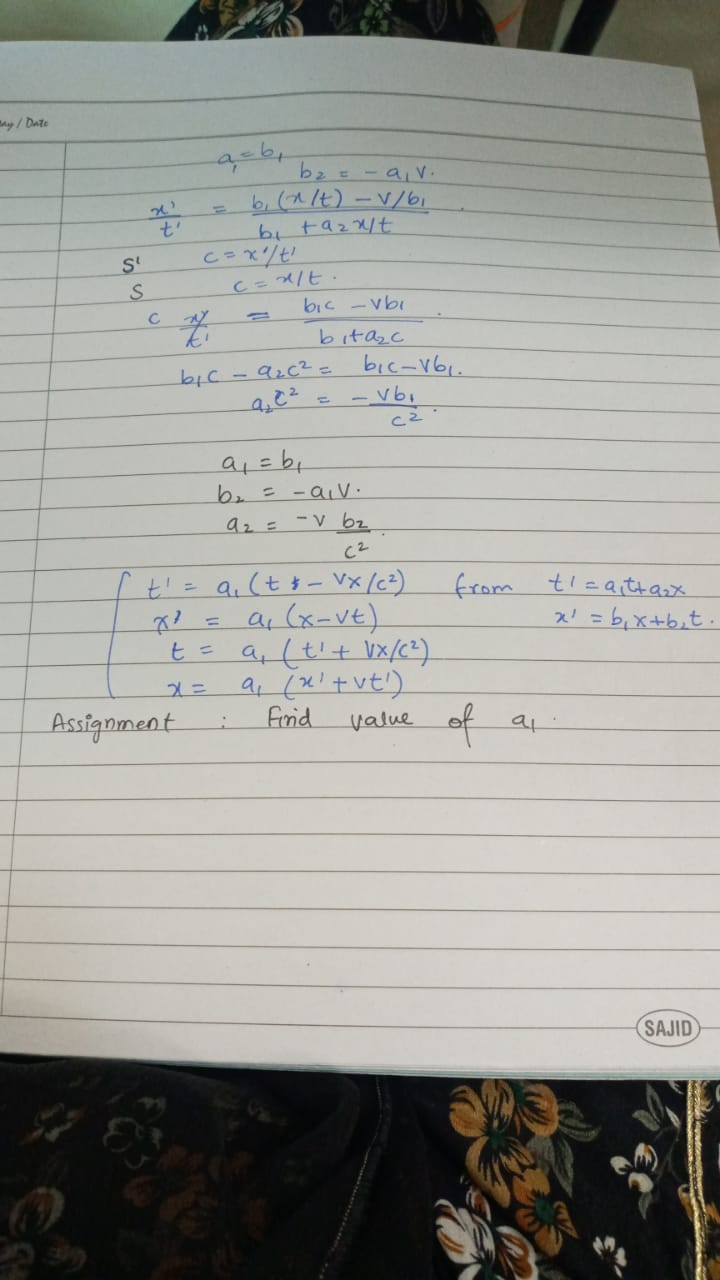 ay / Date
a₁ = b₁
b₂ = - a₁v.
x'/t' = (b₁(x/t) - v/b₁)/(b₁ + a₂x/t)
S' c = x'/t'
S c = x/t.
c x'/t' = (b₁c - vb₁)/(b₁+a₂c)
b₁c - a₂c² = b₁c - vb₁.
a₂c² = - vb₁/c².
a₁ = b₁
b₂ = - a₁v.
a₂ = - v b₂/c².
t' = a₁ (t - vx/c²) from t' = a₁t+a₂x
x' = a₁ (x-vt) x' = b₁x+b₂t.
t = a₁ (t' + vx/c²)
x = a₁ (x' + vt')
Assignment : Find value of a₁.
SAJID